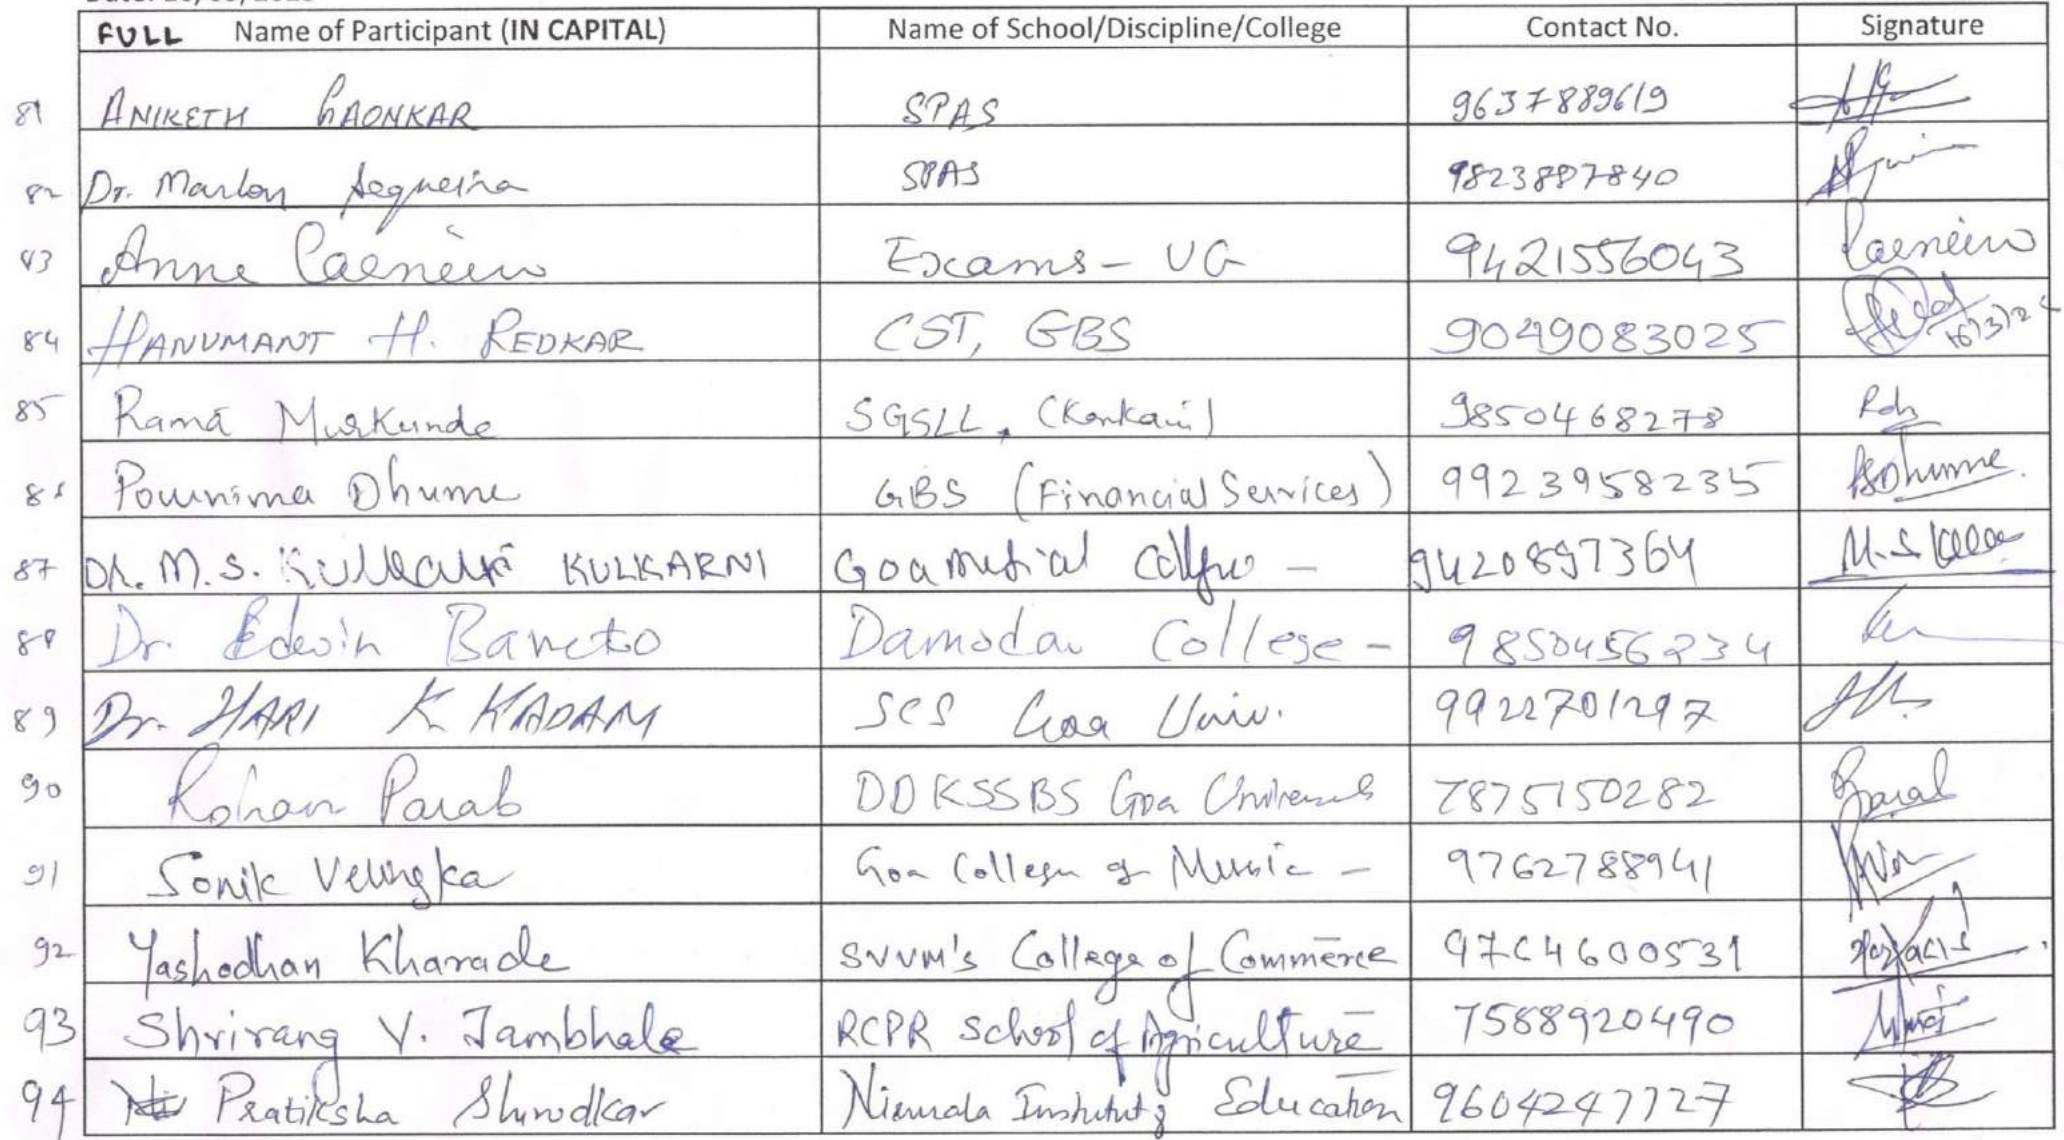 FULL Name of Participant (IN CAPITAL) Name of School/Discipline/College Contact No. Signature
81 ANIKETH GAONKAR SPAS 9637889619
82 Dr. Marlon Sequeira SPAS 9823887840
83 Anne Carneiro Exams - UG 9421556043 Carneiro
84 HANUMANT H. REDKAR CST, GBS 9049083025
85 Rama Murkunde SGSLL, (Konkani) 9850468278
86 Pournima Dhume GBS (Financial Services) 9923958235 PSDhume.
87 DR. M.S. KULKARNI Goa Medical College - 9420897364 M.S
88 Dr. Edwin Barreto Damodar College - 9850456234
89 Dr. HARI K KADAM SCS Goa Univ. 9922701297
90 Rohan Parab DDKSSBS Goa University 7875150282 Parab
91 Sonik Velingka Goa College of Music - 9762788941
92 Yashodhan Kharade SVVM's College of Commerce 9764600531
93 Shrirang V. Jambhale RCPR School of Agriculture 7588920490
94 Pratiksha Shirodkar Nirmala Institute of Education 9604247727